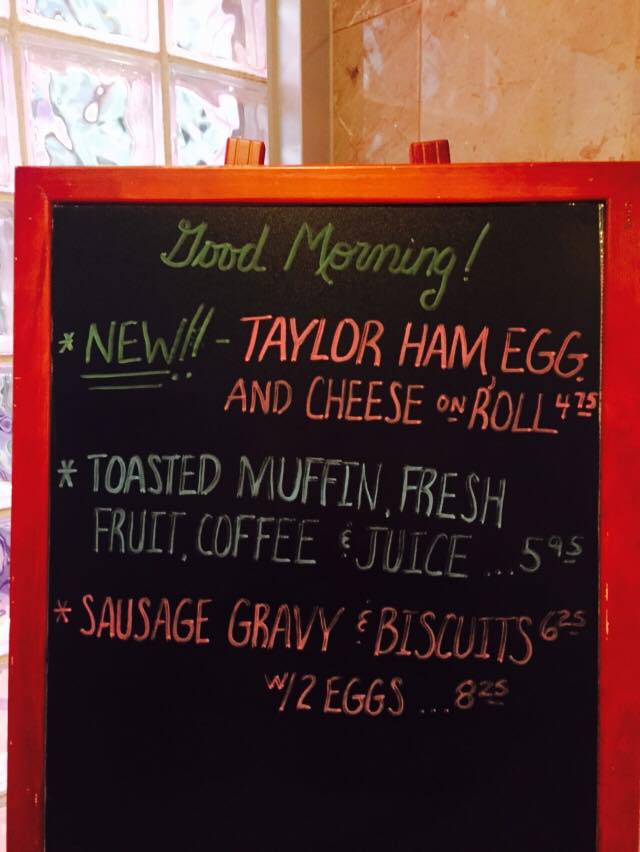 Good Morning!
* NEW!!! - TAYLOR HAM, EGG,
AND CHEESE ON ROLL 4 75
* TOASTED MUFFIN, FRESH
FRUIT, COFFEE & JUICE ... 5 95
* SAUSAGE GRAVY & BISCUITS 6 25
W/ 2 EGGS ... 8 25